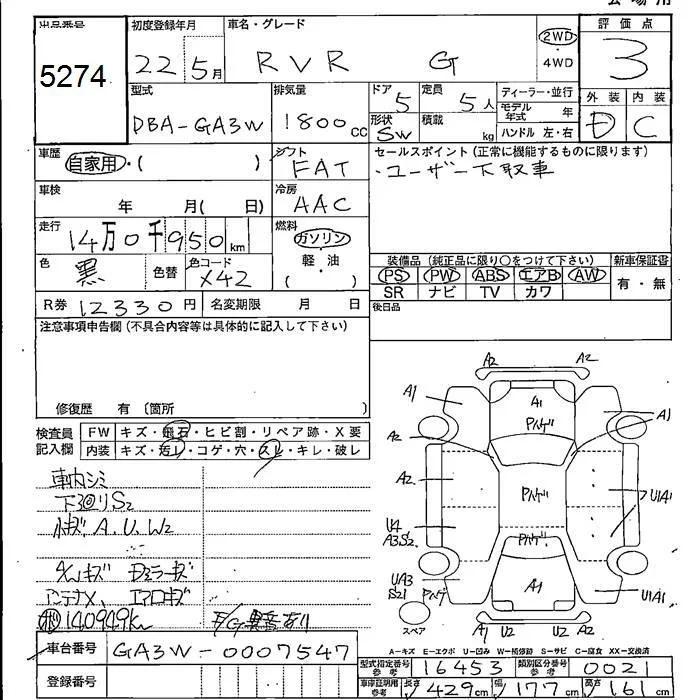 会場用
出品番号
5274
初度登録年月
22 5月
車名・グレード
RVR G
2WD
・4WD
評価点
3
型式
DBA-GA3W
排気量
1800cc
ドア
5
形状
SW
定員
5人
積載
kg
ディーラー・並行
モデル年式 年
ハンドル 左・右
外装
D
内装
C
車歴
自家用・( )
シフト
FAT
車検
年 月( 日)
冷房
AAC
走行
14万0千950km
燃料
ガソリン
軽・油
( )
色
黒
色替
色コード
X42
R券 12330円
名変期限 月 日
セールスポイント(正常に機能するものに限ります)
・ユーザー下取車
装備品(純正品に限り○をつけて下さい)
PS PW ABS エアB AW
SR ナビ TV カワ
新車保証書
有・無
後日品
注意事項申告欄(不具合内容等は具体的に記入して下さい)
修復歴 有〔箇所 〕
検査員記入欄
FW キズ・飛石・ヒビ割・リペア跡・X要
内装 キズ・汚レ・コゲ・穴・スレ・キレ・破レ
車内シミ
下廻りS2
小キズA.U.W2
ガラスキズ 左ミラーキズ
アンテナX、エアロキズ
140949km
E/G異音あり
車台番号 GA3W-0007547
登録番号
A2 A2
A1 A1 A1
A2 PハゲA2 Pハゲ U1A1
U4
A3S2 Pハゲ
UA3
S21 Pハゲ A1 U1A1
スペア
A1 U2 U2 A1
A-キズ E-エクボ U-凹み W-補修跡 S-サビ C-腐食 XX-交換済
型式指定番号参考 16453
類別区分番号参考 0021
車庫証明用参考 長さ 429cm 幅 177cm 高さ 161cm